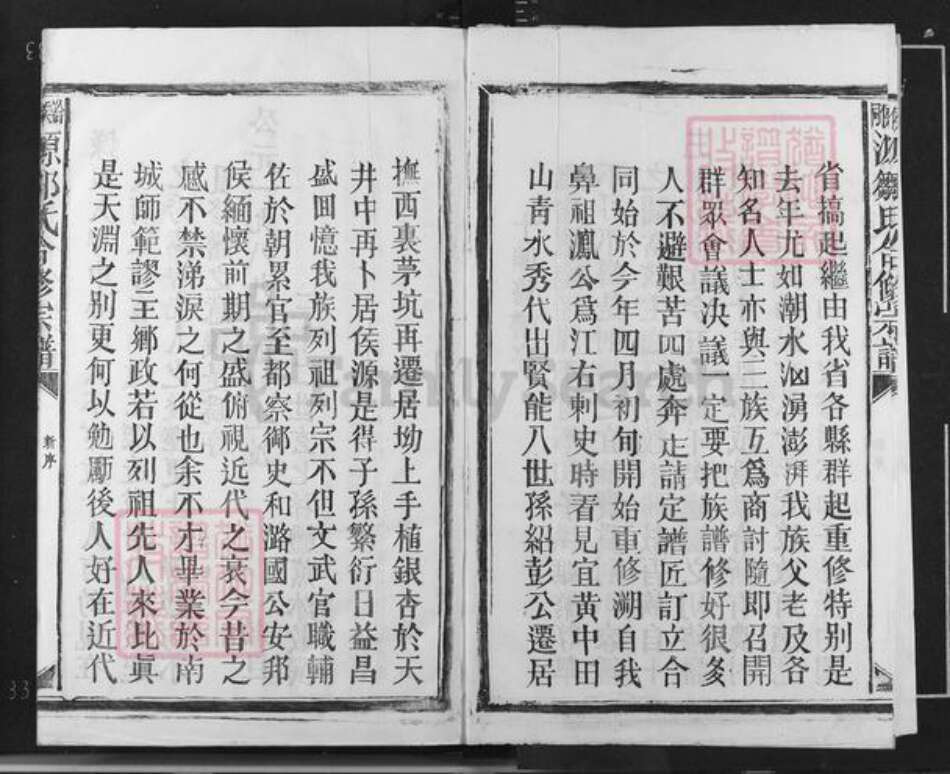 省搞起繼由我省各縣群起重修特别是
去年尤如潮水汹湧澎湃我族父老及各
知名人士亦與三族互爲商討隨即召開
群眾會議决議一定要把族譜修好很多
人不避艱苦四處奔走請定譜匠訂立合
同始於今年四月初旬開始重修溯自我
鼻祖鳳公爲江右刺史時看見宜黄中田
山青水秀代出賢能八世孫紹彭公遷居
撫西裏茅坑再遷居坳上手植銀杏於天
井中再卜居侯源是得子孫繁衍日益昌
盛回憶我族列祖列宗不但文武官職輔
佐於朝累官至都察御史和潞國公安邦
侯緬懷前期之盛俯視近代之衰今昔之
感不禁涕淚之何從也余不才畢業於南
城師範謬主鄉政若以列祖先人來比真
是天淵之别更何以勉勵後人好在近代
源鄒氏合修宗譜
新序
鄒氏合修宗譜
FamilySearch
33